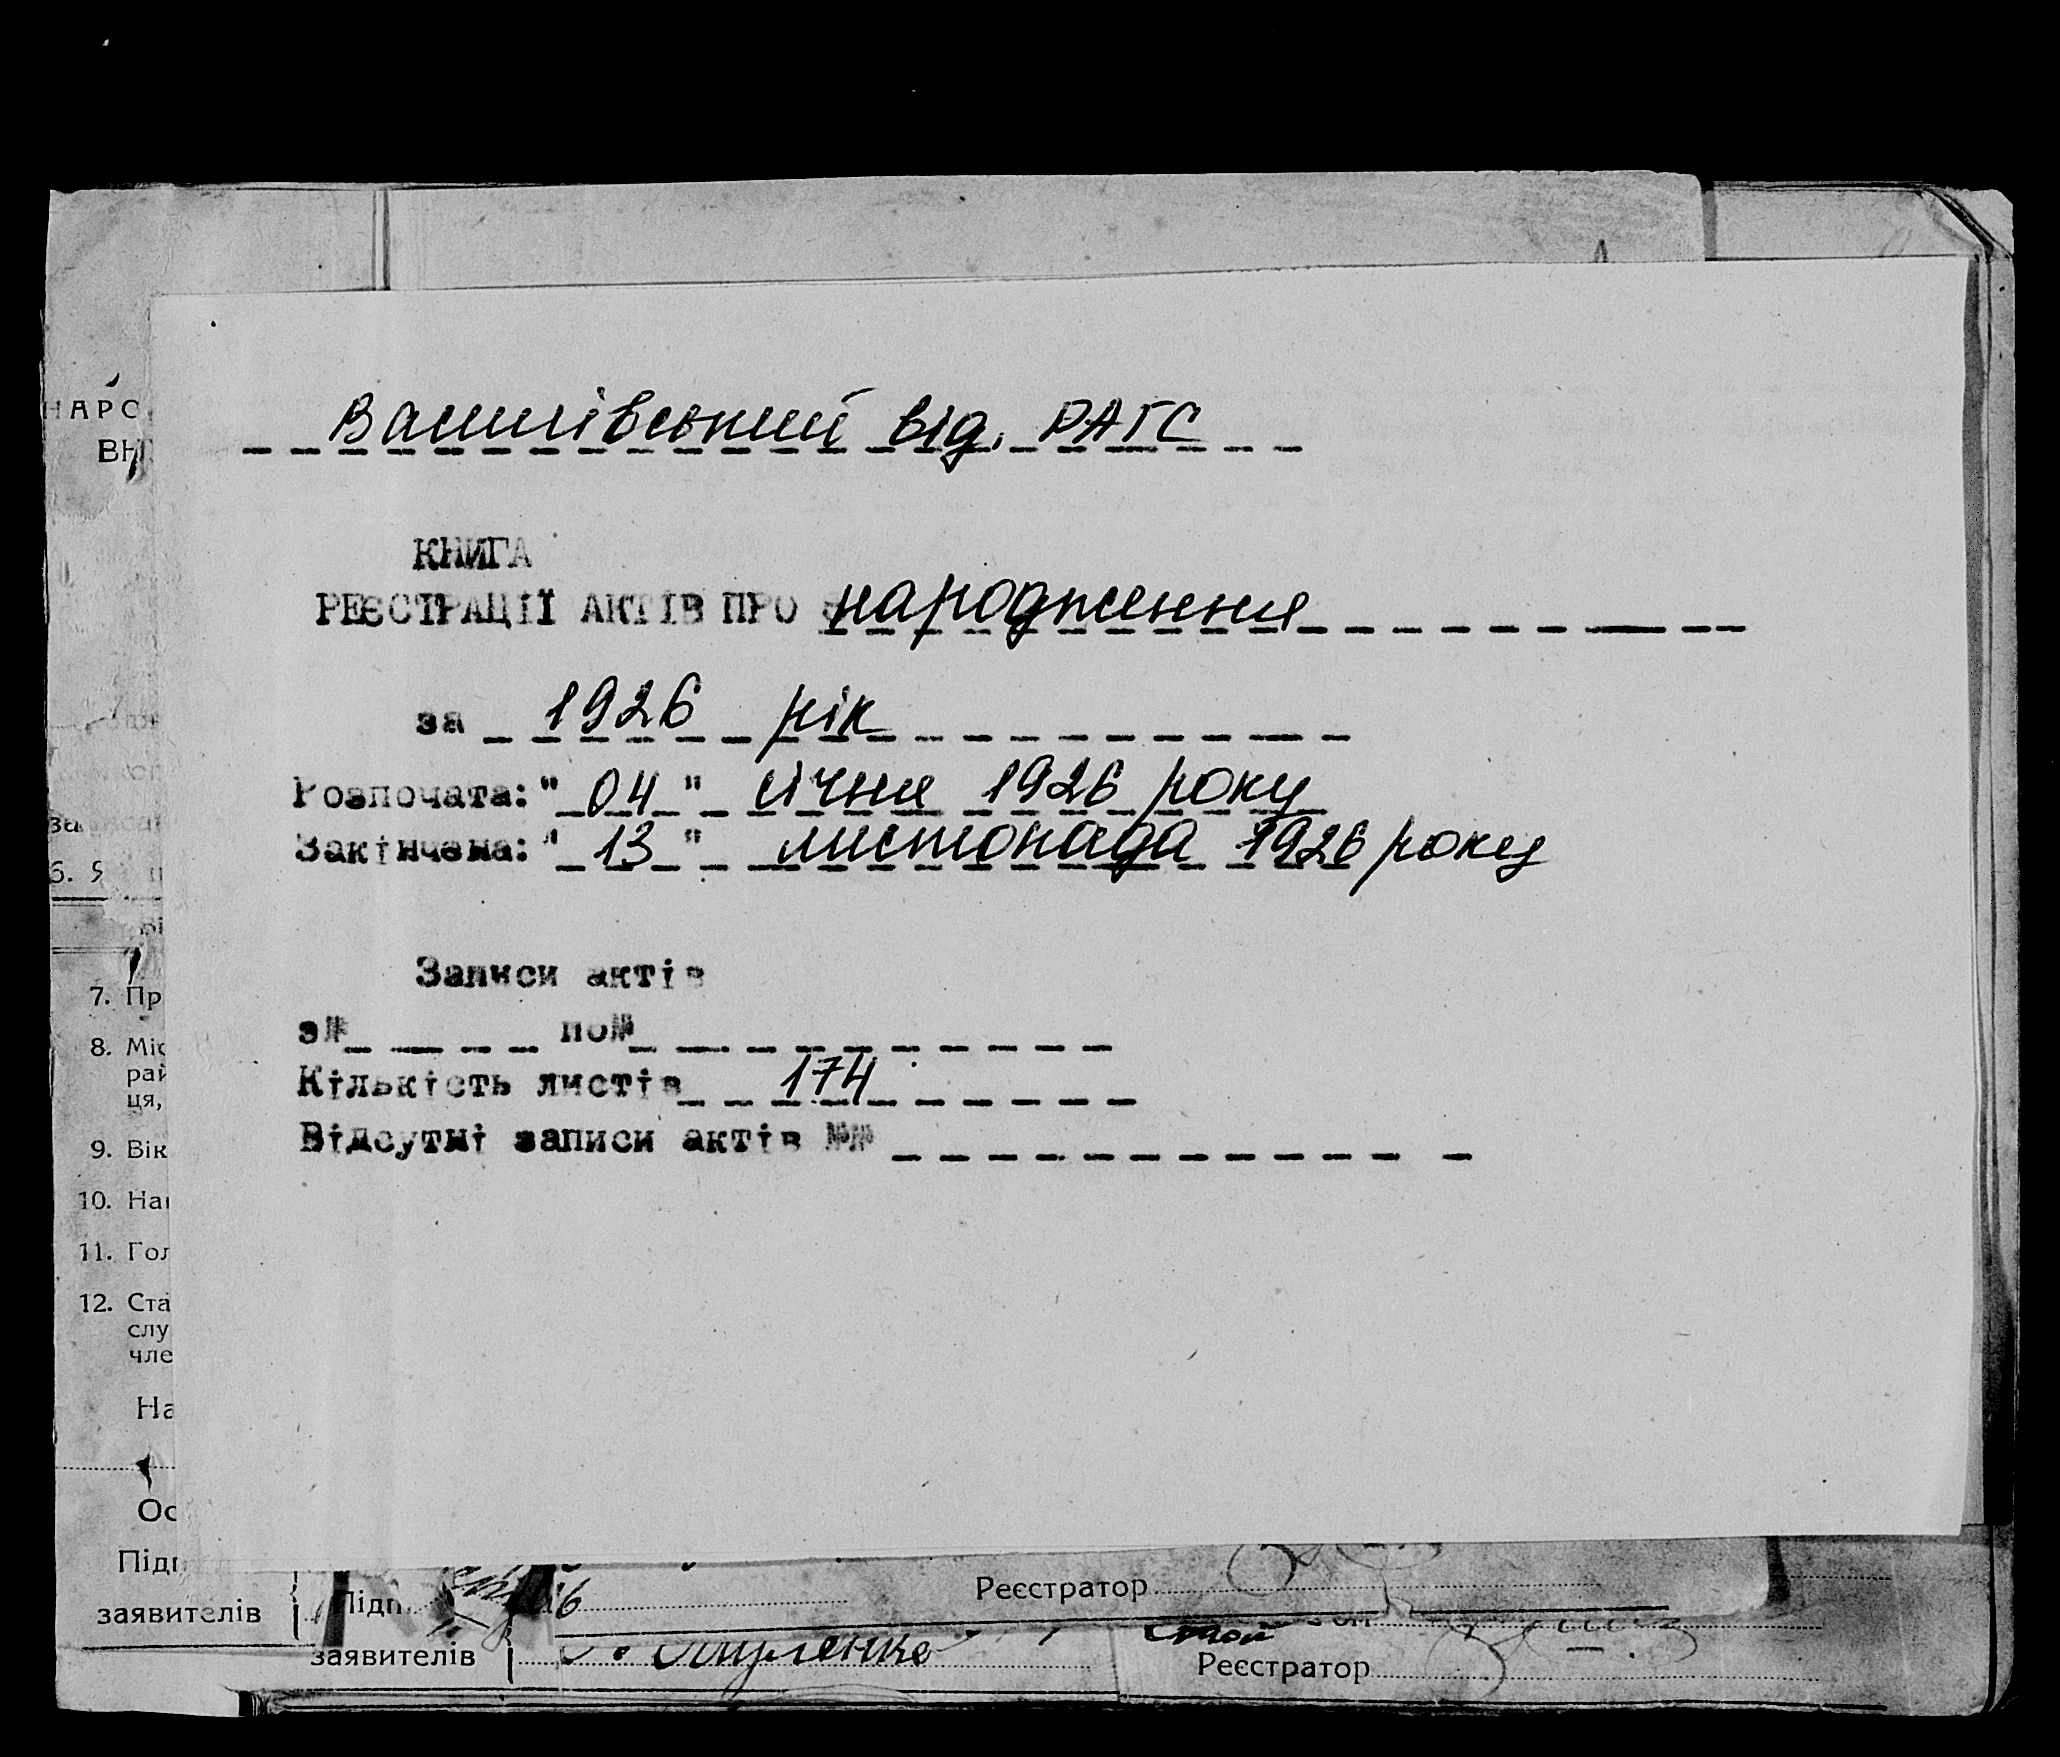 Василівський від. РАГС
КНИГА
РЕЄСТРАЦІЇ АКТІВ ПРО народження
за 1926 рік
Розпочата: "04" січня 1926 року
Закінчена: "13" листопада 1926 року
Записи актів
з№ по№
Кількість листів 174
Відсутні записи актів №№
НАРО
ВН
6. 9
7. Пр
8. Міс
рай
ця,
9. Вік
10. На
11. Гол
12. Ста
слу
чле
На
Ос
Підп
заявителів
Підп. Реєстратор
заявителів Реєстратор